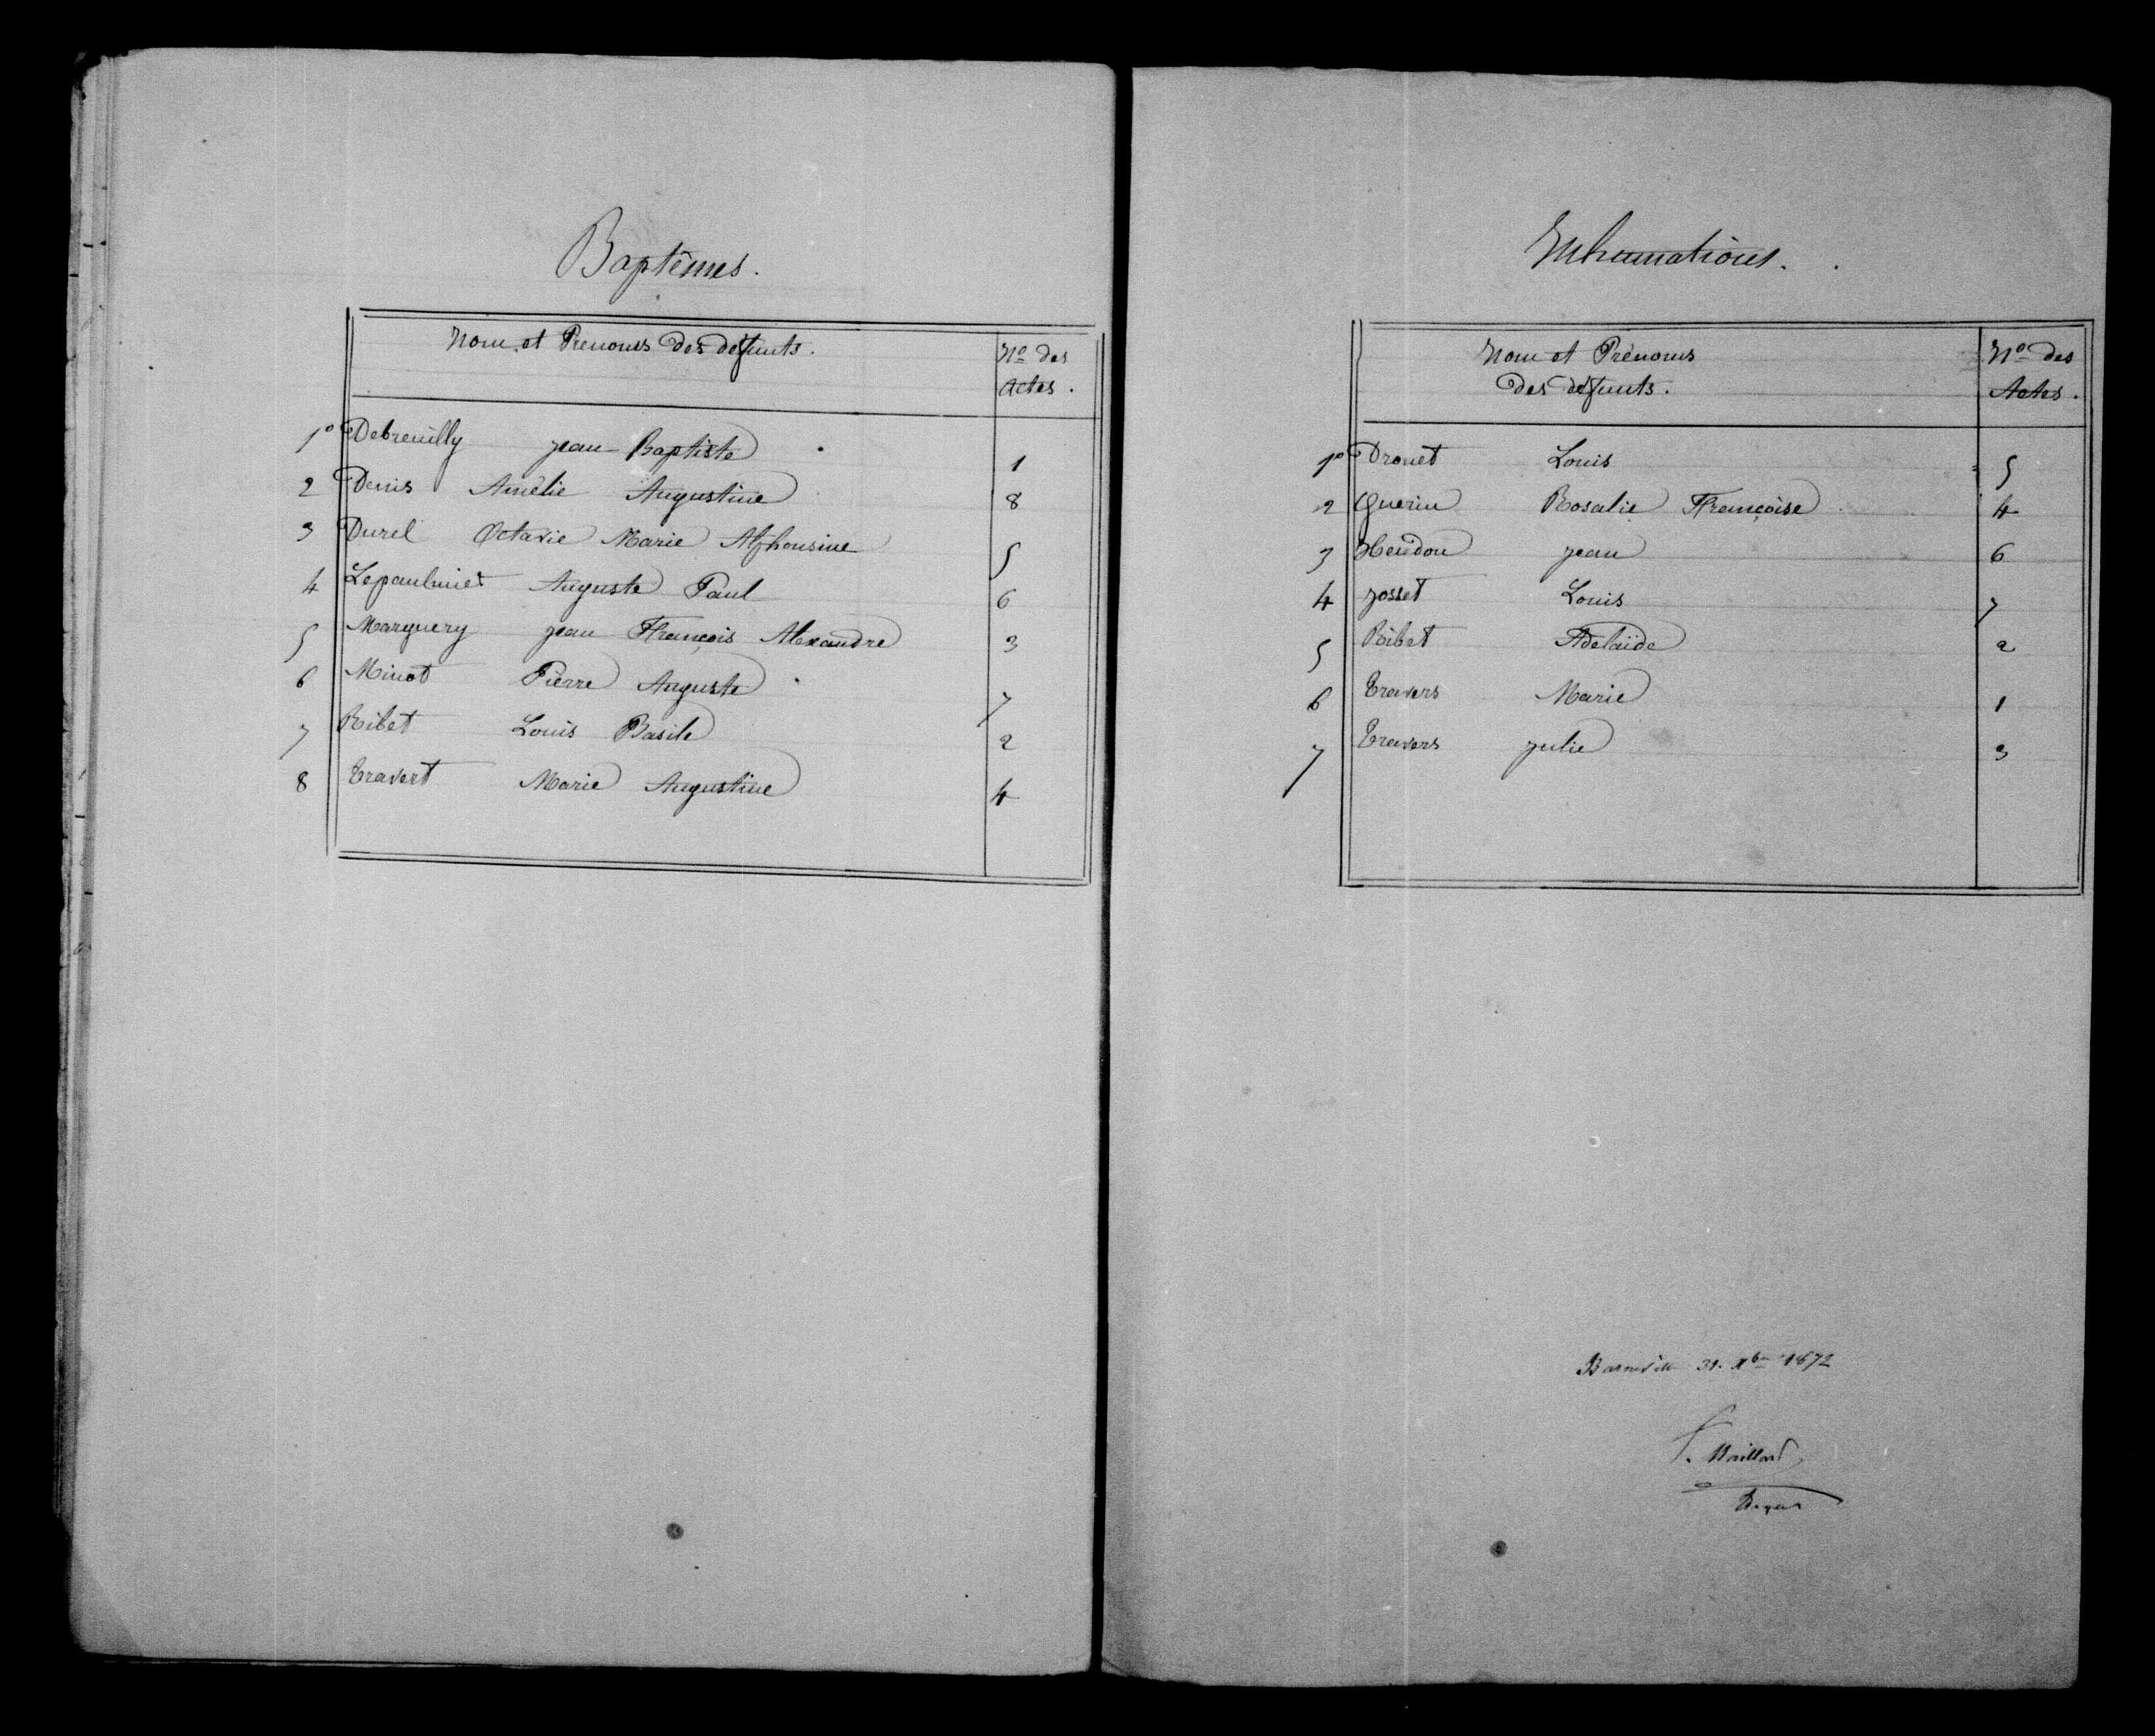 Baptêmes.
Nom et Prenoms des defunts.
No des
Actes.
1o Debreuilly Jean-Baptiste 1
2 Denis Amélie Augustine 8
3 Durel Octavie Marie Alphonsine 5
4 Lepaulmier Auguste Paul 6
5 Marguery Jean François Alexandre 3
6 Minot Pierre Auguste 7
7 Ribet Louis Basile 2
8 Travert Marie Augustine 4
Inhumations.
Nom et Prénoms
des défunts.
No des
Actes.
1o Drouet Louis 5
2 Guerin Rosalie Françoise 4
3 Heudon Jean 6
4 Josset Louis 7
5 Ribet Adelaïde 2
6 Travers Marie 1
7 Travers Julie 3
Barneville 31. Xbre 1872